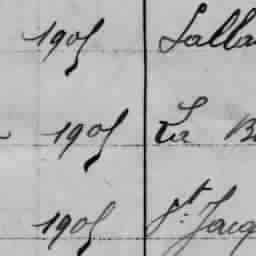 1905 Salla
1905 La B
1905 St. Jacq